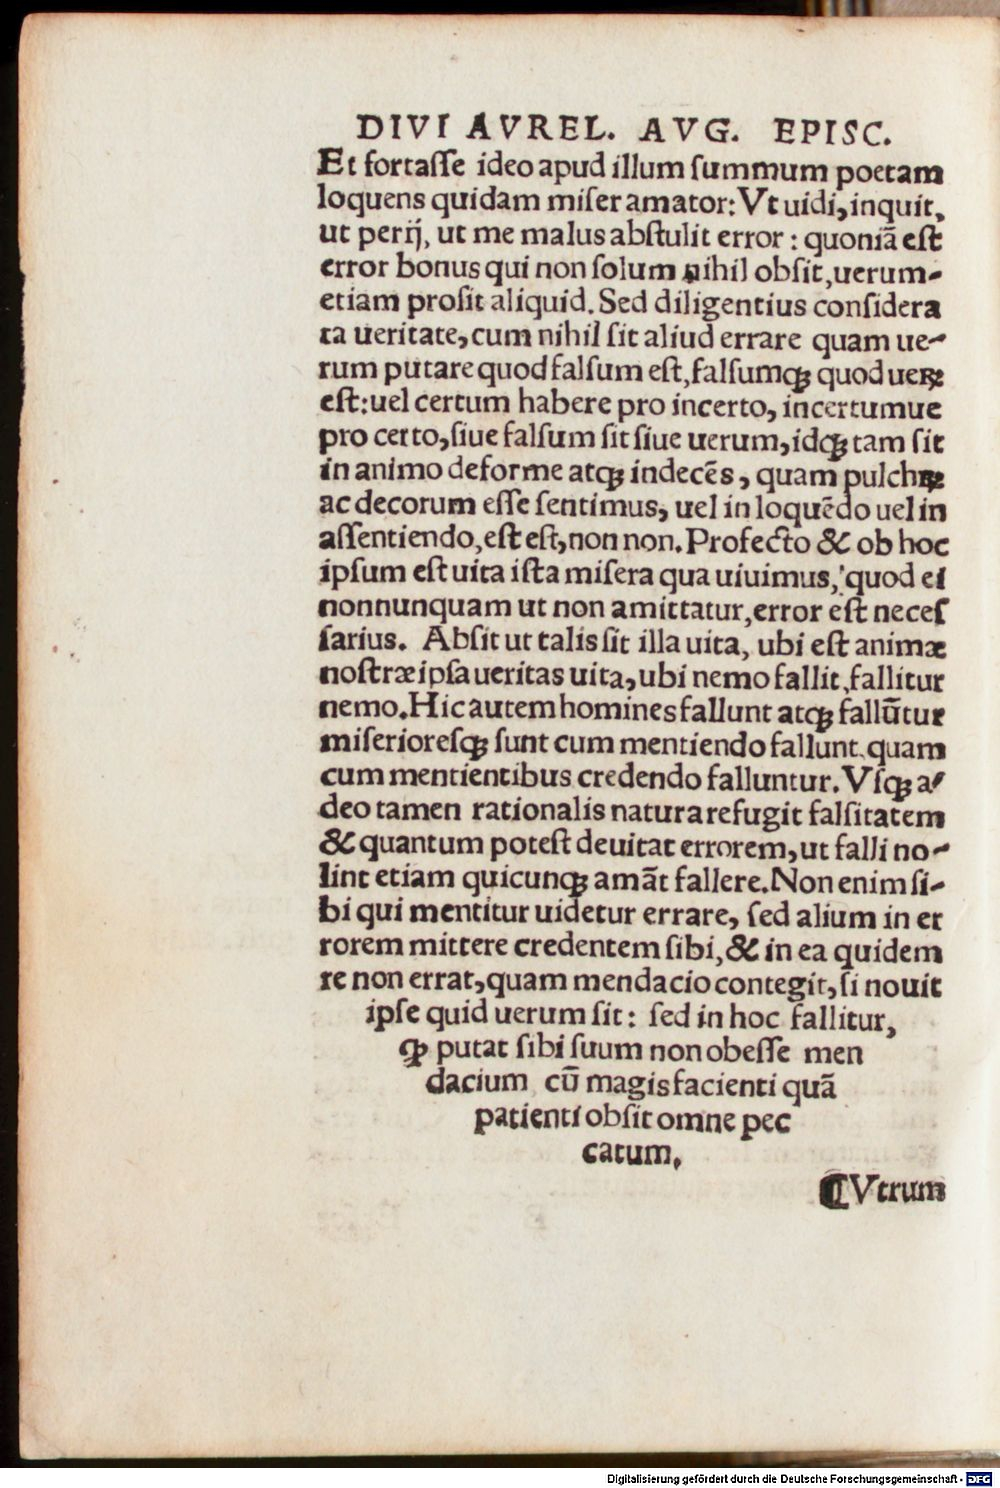 DIVI AVREL. AVG. EPISC.
Et fortaſſe ideo apud illum ſummum poetam
loquens quidam miſer amator: Vt uidi, inquit,
ut perij, ut me malus abſtulit error : quoniā eſt
error bonus qui non ſolum nihil obſit, uerum-
etiam proſit aliquid. Sed diligentius conſidera
ta ueritate, cum nihil ſit aliud errare quam ue-
rum putare quod falſum eſt, falſumq̃ quod ueꝝ
eſt: uel certum habere pro incerto, incertumue
pro certo, ſiue falſum ſit ſiue uerum, idq̃ tam ſit
in animo deforme atq̃ indecēs, quam pulchꝝ
ac decorum eſſe ſentimus, uel in loquēdo uel in
aſſentiendo, eſt eſt, non non. Profecto & ob hoc
ipſum eſt uita iſta miſera qua uiuimus, quod ei
nonnunquam ut non amittatur, error eſt neceſ
ſarius. Abſit ut talis ſit illa uita, ubi eſt animæ
noſtræ ipſa ueritas uita, ubi nemo fallit, fallitur
nemo. Hic autem homines fallunt atq̃ fallūtur
miſerioreſq̃ ſunt cum mentiendo fallunt, quam
cum mentientibus credendo falluntur. Vſq̃ a-
deo tamen rationalis natura refugit falſitatem
& quantum poteſt deuitat errorem, ut falli no-
lint etiam quicunq̃ amāt fallere. Non enim ſi-
bi qui mentitur uidetur errare, ſed alium in er
rorem mittere credentem ſibi, & in ea quidem
re non errat, quam mendacio contegit, ſi nouit
ipſe quid uerum ſit: ſed in hoc fallitur,
ꝙ putat ſibi ſuum non obeſſe men
dacium, cū magis facienti quā
patienti obſit omne pec
catum.
¶ Vtrum
Digitalisierung gefördert durch die Deutsche Forschungsgemeinschaft - DFG